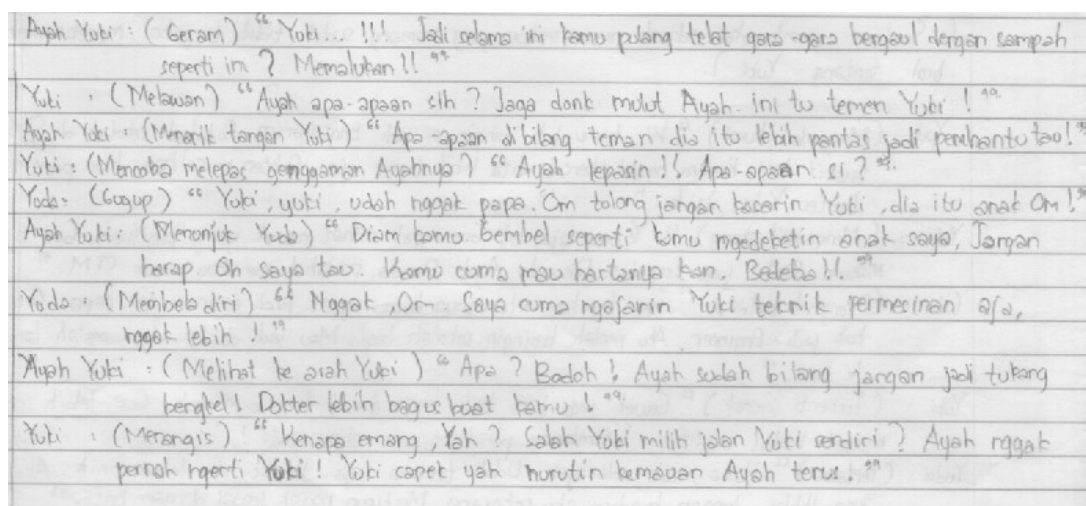 Ayah Yuki : (Geram) “ Yuki... !!! Jadi selama ini kamu pulang telat gara-gara bergaul dengan sampah
seperti ini ? Memalukan !! ”
Yuki : (Melawan) “ Ayah apa-apaan sih ? Jaga donk mulut Ayah. ini tu temen Yuki ! ”
Ayah Yuki : (Menarik tangan Yuki) “ Apa-apaan dibilang teman dia itu lebih pantas jadi pembantu tau! ”
Yuki : (Mencoba melepas genggaman Ayahnya) “ Ayah lepasin !! Apa-apaan si ? ”
Yoda : (Gugup) “ Yuki, yuki, udah nggak papa. Om tolong jangan kasarin Yuki, dia itu anak Om ! ”
Ayah Yuki : (Menunjuk Yuda) “ Diam kamu Gembel seperti kamu ngedeketin anak saya, Jangan
harap Oh saya tau. Kamu cuma mau hartanya kan. Bedeba !!. ”
Yoda (Membela diri) “ Nggak, Om. Saya cuma ngajarin Yuki teknik permesinan aja,
nggak lebih ! ”
Ayah Yuki : (Melihat ke arah Yuki) “ Apa ? Bodoh ! Ayah sudah bilang jangan jadi tukang
bengkel ! Dokter lebih bagus buat kamu ! ”
Yuki : (Menangis) “ Kenapa emang, Yah ? Salah Yuki milih jalan Yuki sendiri ? Ayah nggak
pernah ngerti Yuki ! Yuki capek yah nurutin kemauan Ayah terus. ”